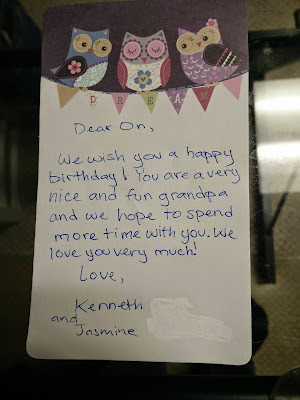 DREAM
Dear On,
We wish you a happy
birthday! You are a very
nice and fun grandpa
and we hope to spend
more time with you. We
love you very much!
Love,
Kenneth
and
Jasmine